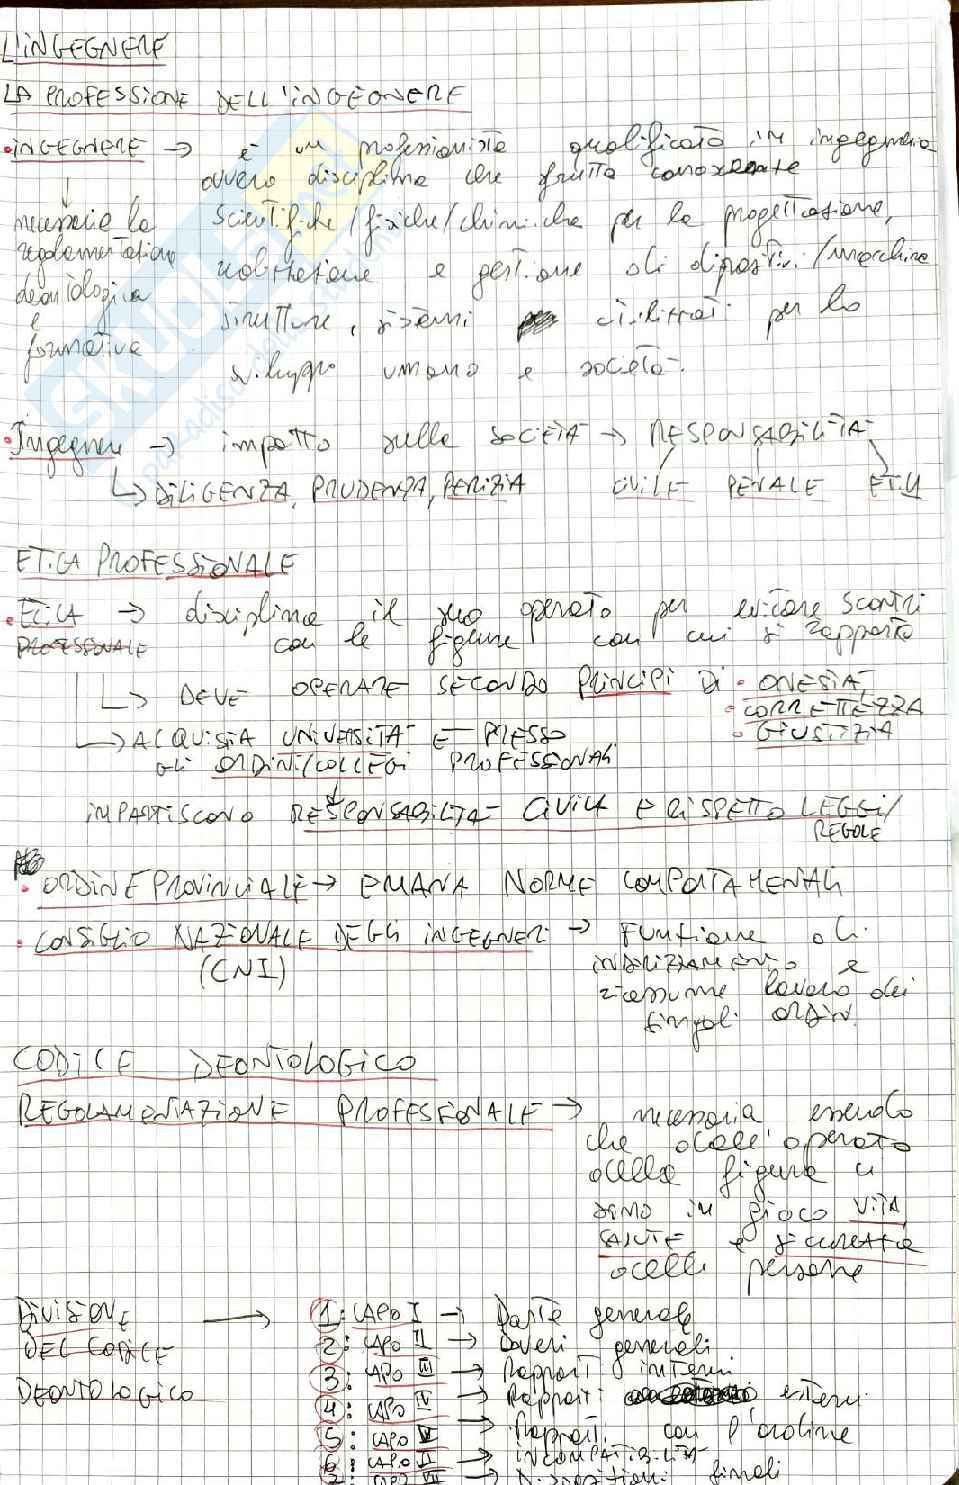 L'INGEGNERE
LA PROFESSIONE DELL'INGEGNERE
• INGEGNERE → è un professionista qualificato in ingegneria
ovvero disciplina che sfrutta conoscente
necessaria la scientifiche/fisiche/chimiche per la progettazione,
regolamentazione realizzazione e gestione di dipositivi/macchine
deontologica
e strutture, sistemi per lo
formativa
sviluppo umano e società.
• Ingegnere → impatto sulla SOCIETÀ → RESPONSABILITÀ
↳ DILIGENZA, PRUDENZA, PERIZIA CIVILE PENALE ETICA
ETICA PROFESSIONALE
• ETICA → disciplina il suo operato per evitare scontri
PROFESSIONALE con le figure con cui si rapporta
↳ DEVE OPERARE SECONDO PRINCIPI DI • ONESTÀ,
• CORRETTEZZA
• GIUSTIZIA
↳ ACQUISITA UNIVERSITÀ E PRESSO
GLI ORDINI/COLLEGI PROFESSIONALI
IMPARTISCONO RESPONSABILITÀ CIVILE E RISPETTO LEGGI/
REGOLE
• ORDINE PROVINCIALE → EMANA NORME COMPORTAMENTALI
• CONSIGLIO NAZIONALE DEGLI INGEGNERI → Funzione di
(CNI) INDIRIZZAMENTO e
riassume lavoro dei
singoli ordini
CODICE DEONTOLOGICO
REGOLAMENTAZIONE PROFESSIONALE → necessaria essendo
che dall'operato
della figura ci
sono in gioco VITA,
SALUTE e sicurezza
delle persone
DIVISIONE → 1: CAPO I → Parte generale
DEL CODICE 2: CAPO II → Doveri generali
3: CAPO III → Rapporti interni
DEONTOLOGICO 4: CAPO IV → Rapporti esterni
5: CAPO V → Rapporti con l'ordine
6: CAPO VI → INCOMPATIBILITÀ
7: CAPO VII → Disposizioni finali